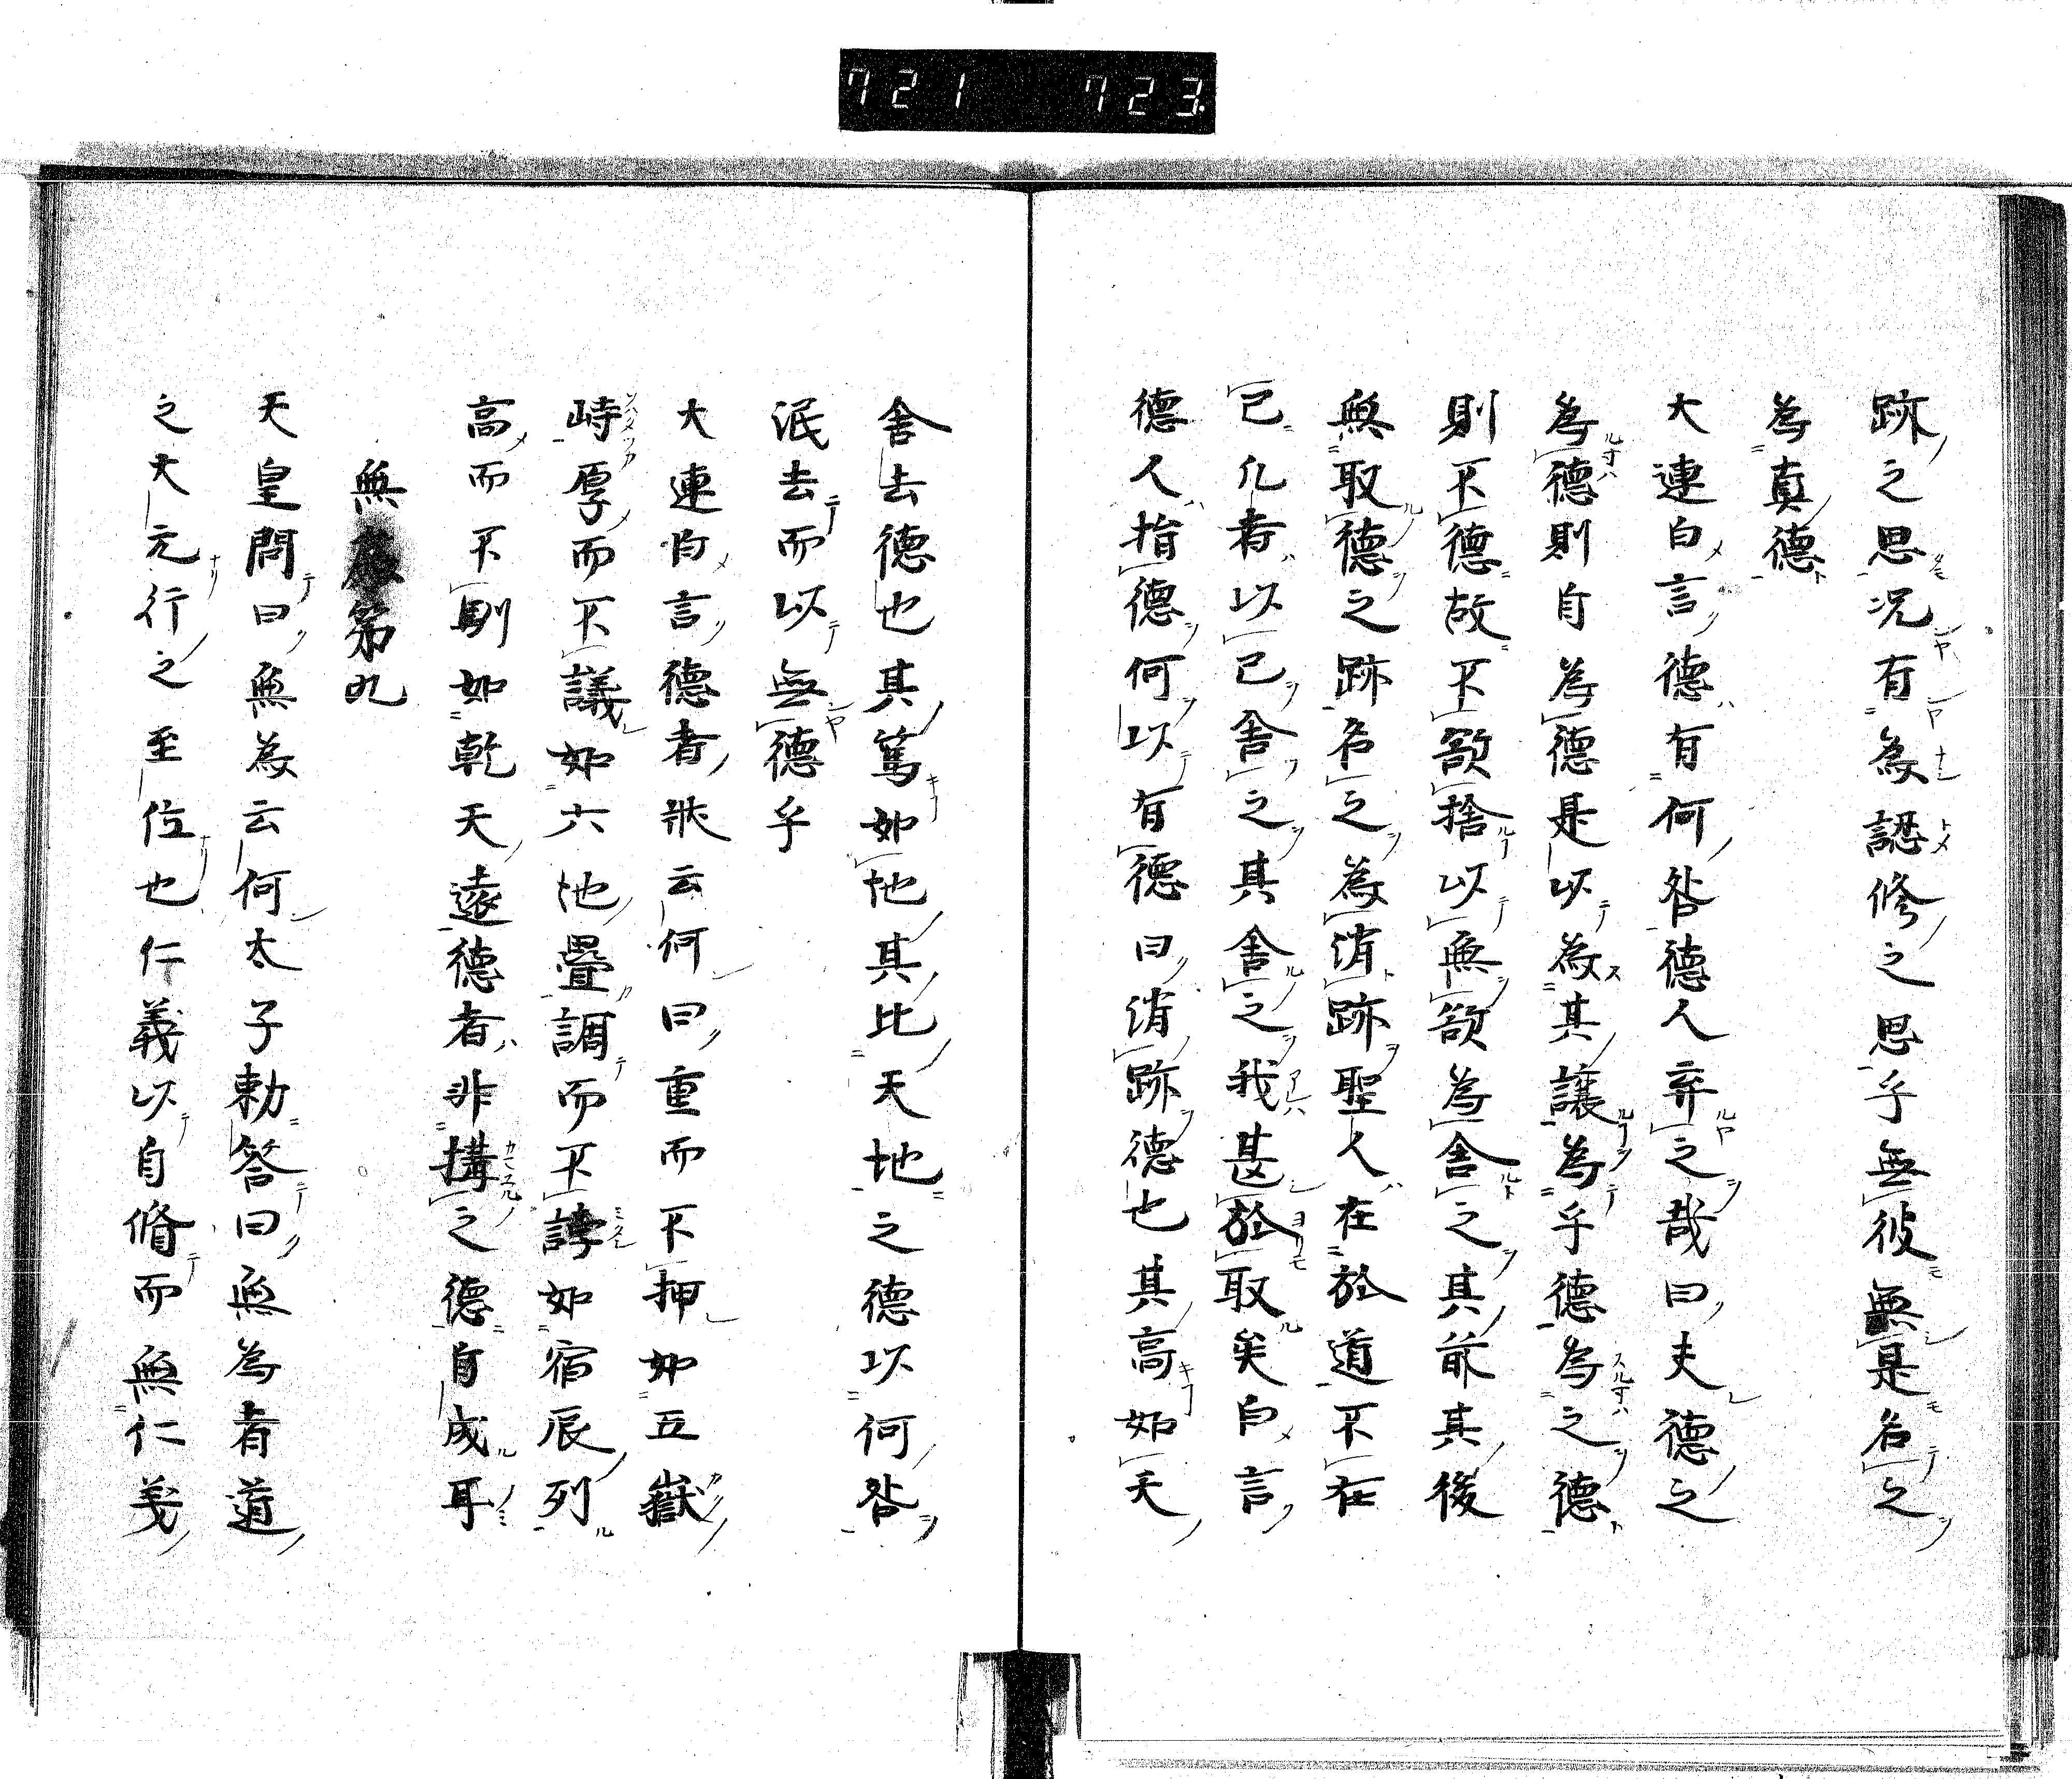 721 723.
跡之思况有為認修之思乎無彼無是名之
為真德
大連白言德有何咎德人弃之哉曰夫德之
為德則自為德是以為其讓為乎德為之德
則不德故不欲捨以無欲為舎之其前其後
無取德之跡名之為消跡聖人在於道不在
已凢者以已舎之其舎之我甚於取矣白言
德人指德何以有德曰消跡德也其高如天
舎去德也其篤如地其比天地之德以何咎
泯去而以無德乎
大連白言德者狀云何曰重而不押如五嶽
峙厚而不議如六地疊調而不誇如宿辰列
高而不則如乾天遠德者非搆之德自成耳
無為第九
天皇問曰無為云何太子勅答曰無為者道
之大元行之至位也仁義以自脩而無仁義